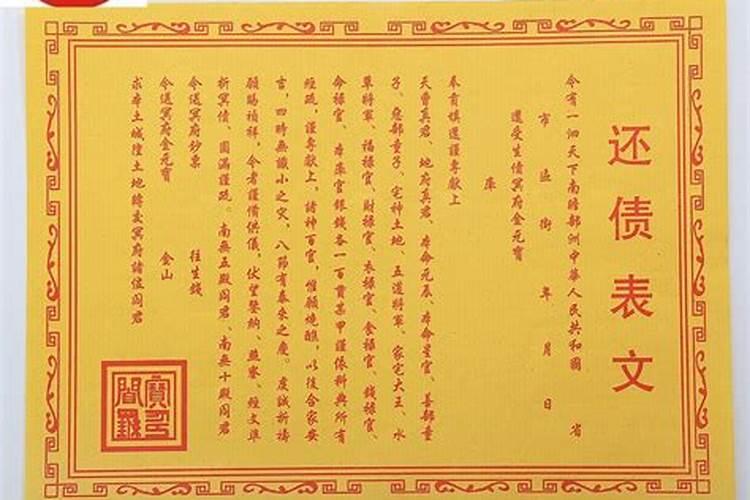 还债表文
今有一泗天下南瞻部洲中華人民共和國 省
市 區 街 年 月 日
還受生債冥府金元寶
庫
奉肯填還謹專獻上
天曹真君、地府真君、本命元辰、本命星官、善部童
子、惡部童子、宅神土地、五道將軍、家宅大王、水
草將軍、福禄官、財禄官、衣禄官、食禄官、錢禄官、
命禄官、本庫官銀錢各一百貫某甲謹依科典所有
經疏，謹專獻上，諸神百官，惟願燒醮，以後合家安
吉，四時無讖小之灾，八節有泰來之慶。虔誠祈禱
願賜禎祥，令者謹備供儀，伏望鑒納、 經文準
折冥債、圓滿謹疏。南無五殿阎君、南無十殿阎君
令送冥府钞票 往生錢
令送冥府金元寶 金山
求本土城隍土地轉交冥府諸位阎君